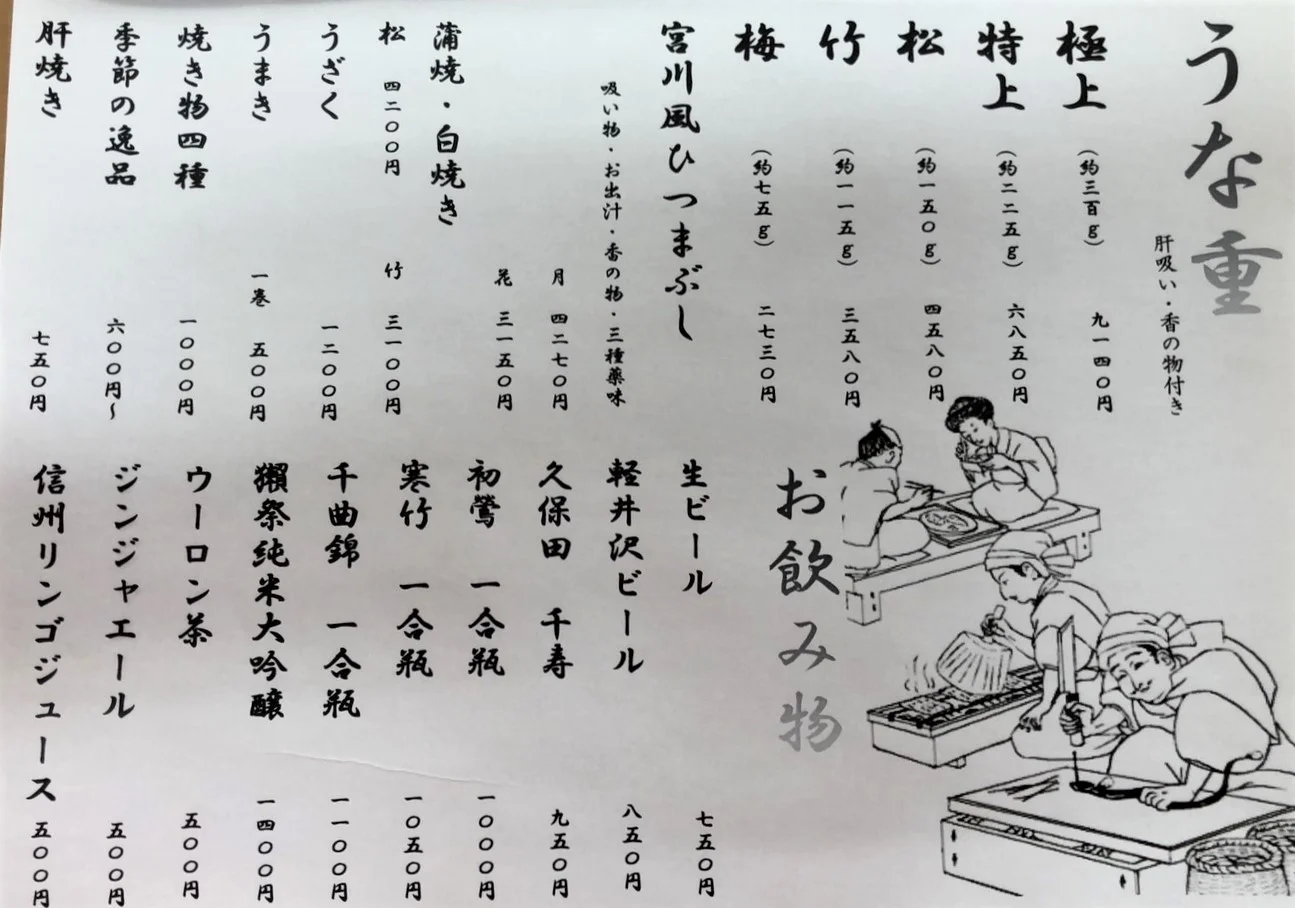 うな重
肝吸い・香の物付き
極上 （約三百g） 九一四〇円
特上 （約二二五g） 六八五〇円
松 （約一五〇g） 四五八〇円
竹 （約一一五g） 三五八〇円
梅 （約七五g） 二七三〇円
宮川風ひつまぶし
吸い物・お出汁・香の物・三種薬味
月 四二七〇円
花 三一五〇円
蒲焼・白焼き
松 四二〇〇円 竹 三一〇〇円
うざく 一二〇〇円
うまき 一巻 五〇〇円
焼き物四種 一〇〇〇円
季節の逸品 六〇〇円～
肝焼き 七五〇円
お飲み物
生ビール 七五〇円
軽井沢ビール 八五〇円
久保田 千寿 九五〇円
初鶯 一合瓶 一〇〇〇円
寒竹 一合瓶 一〇五〇円
千曲錦 一合瓶 一一〇〇円
獺祭純米大吟醸 一四〇〇円
ウーロン茶 五〇〇円
ジンジャエール 五〇〇円
信州リンゴジュース 五〇〇円